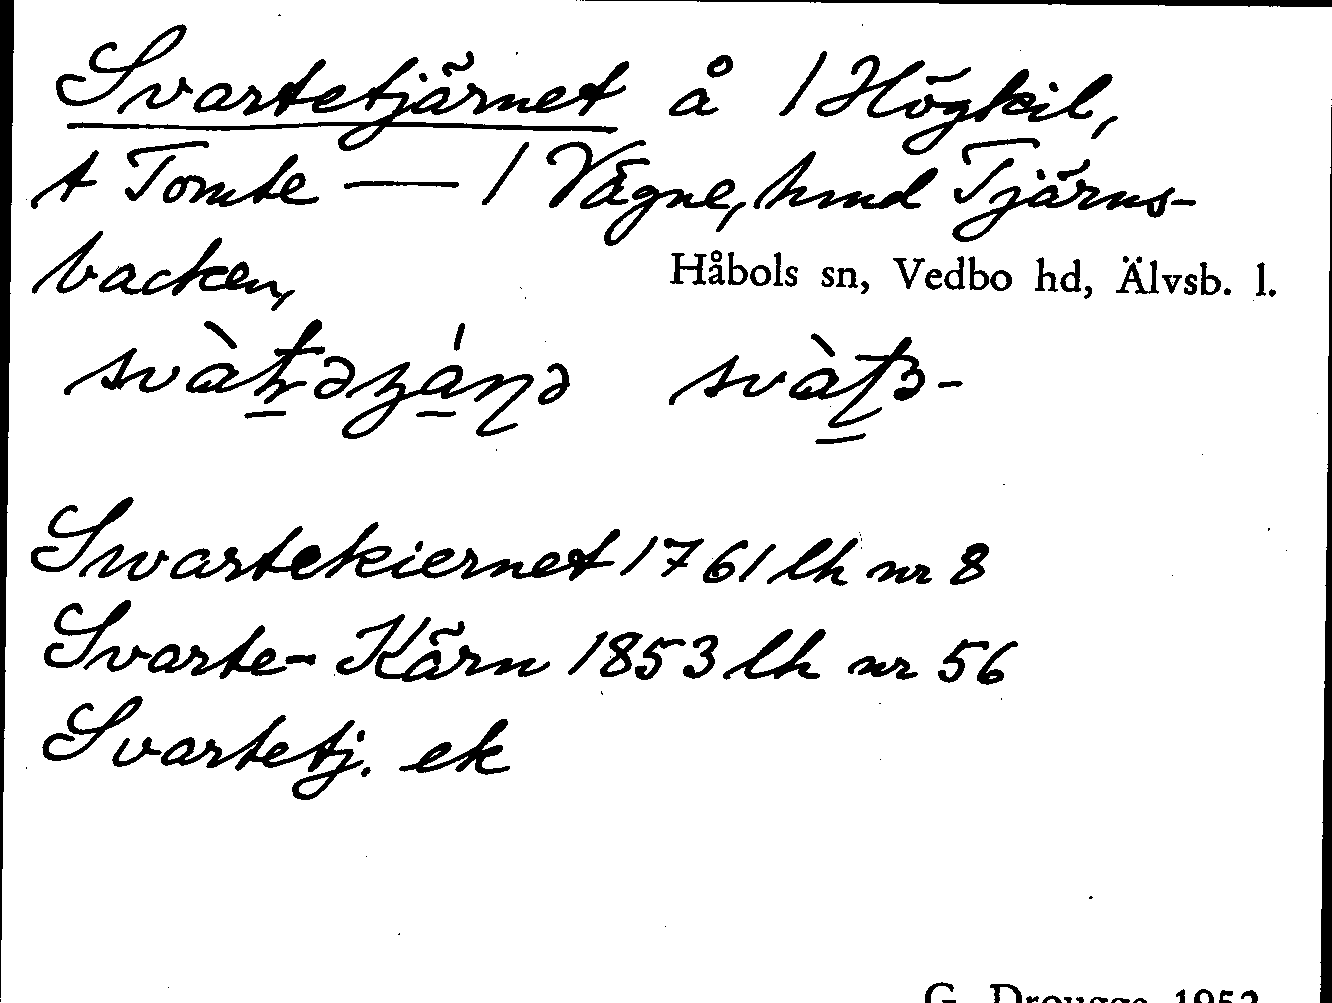 Svartetjärnet å 1 Högkil,
t Tomte — 1 Vägne, hmd Tjärns-
backen,
Håbols sn, Vedbo hd, Älvsb. l.
Swartekiernet 1761 lh nr 8
Svarte-Kärn 1853 lh nr 56
Svartetj. ek
G. Drougge 1952